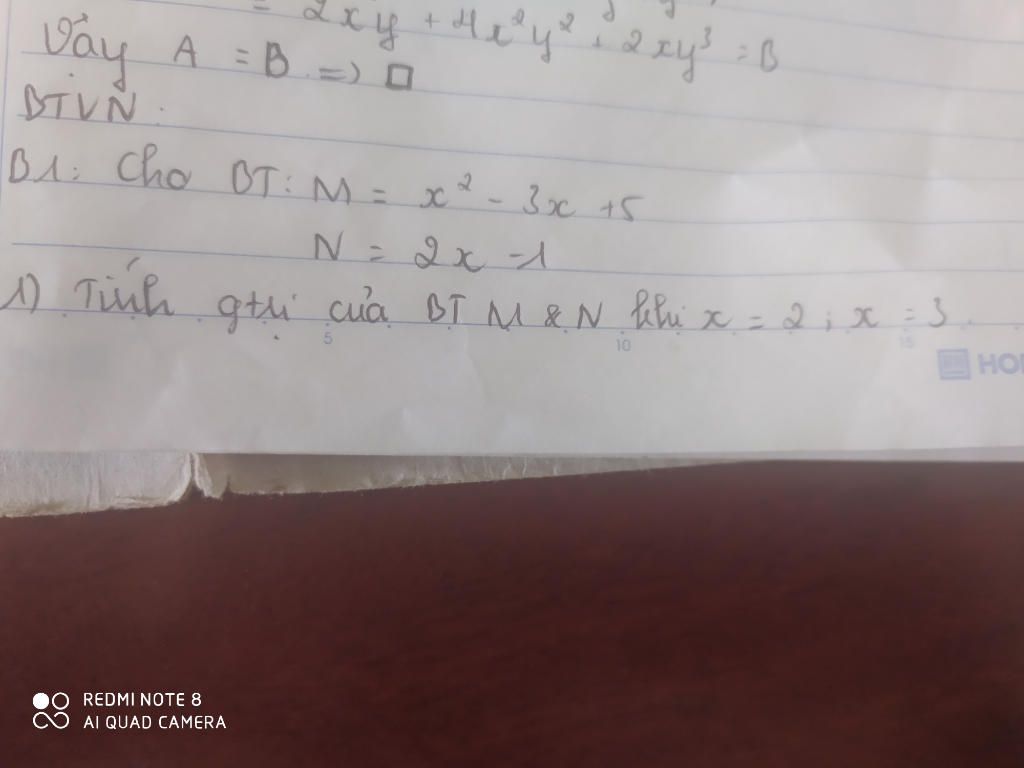 = 2xy + 4x²y² + 2xy³ = B
Vậy A = B => □
BTVN:
B1: Cho BT: M = x² - 3x + 5
N = 2x - 1
1) Tính gtrị của BT M & N khi x = 2; x = 3.
5 10 15
HON
REDMI NOTE 8
AI QUAD CAMERA